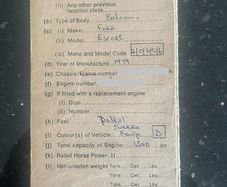 (ii) Any other previous
taxation class
(b) Type of Body Saloon
(c) (i) Maker Ford
(ii) Model Escort
(iii) Make and Model Code
(d) Year of Manufacture 1979
(e) Chassis/Frame number
(f) Engine number
(g) If fitted with a replacement engine
(i) Date
(ii) Number
(h) Fuel Petrol
(i) Colour(s) of Vehicle Beige D
(j) Total capacity of Engine cc
(k) Rated Horse Power 11
(l) Net unladen weight Tons Cwt Lbs
Tons Cwt Lbs
Tons Cwt Lbs